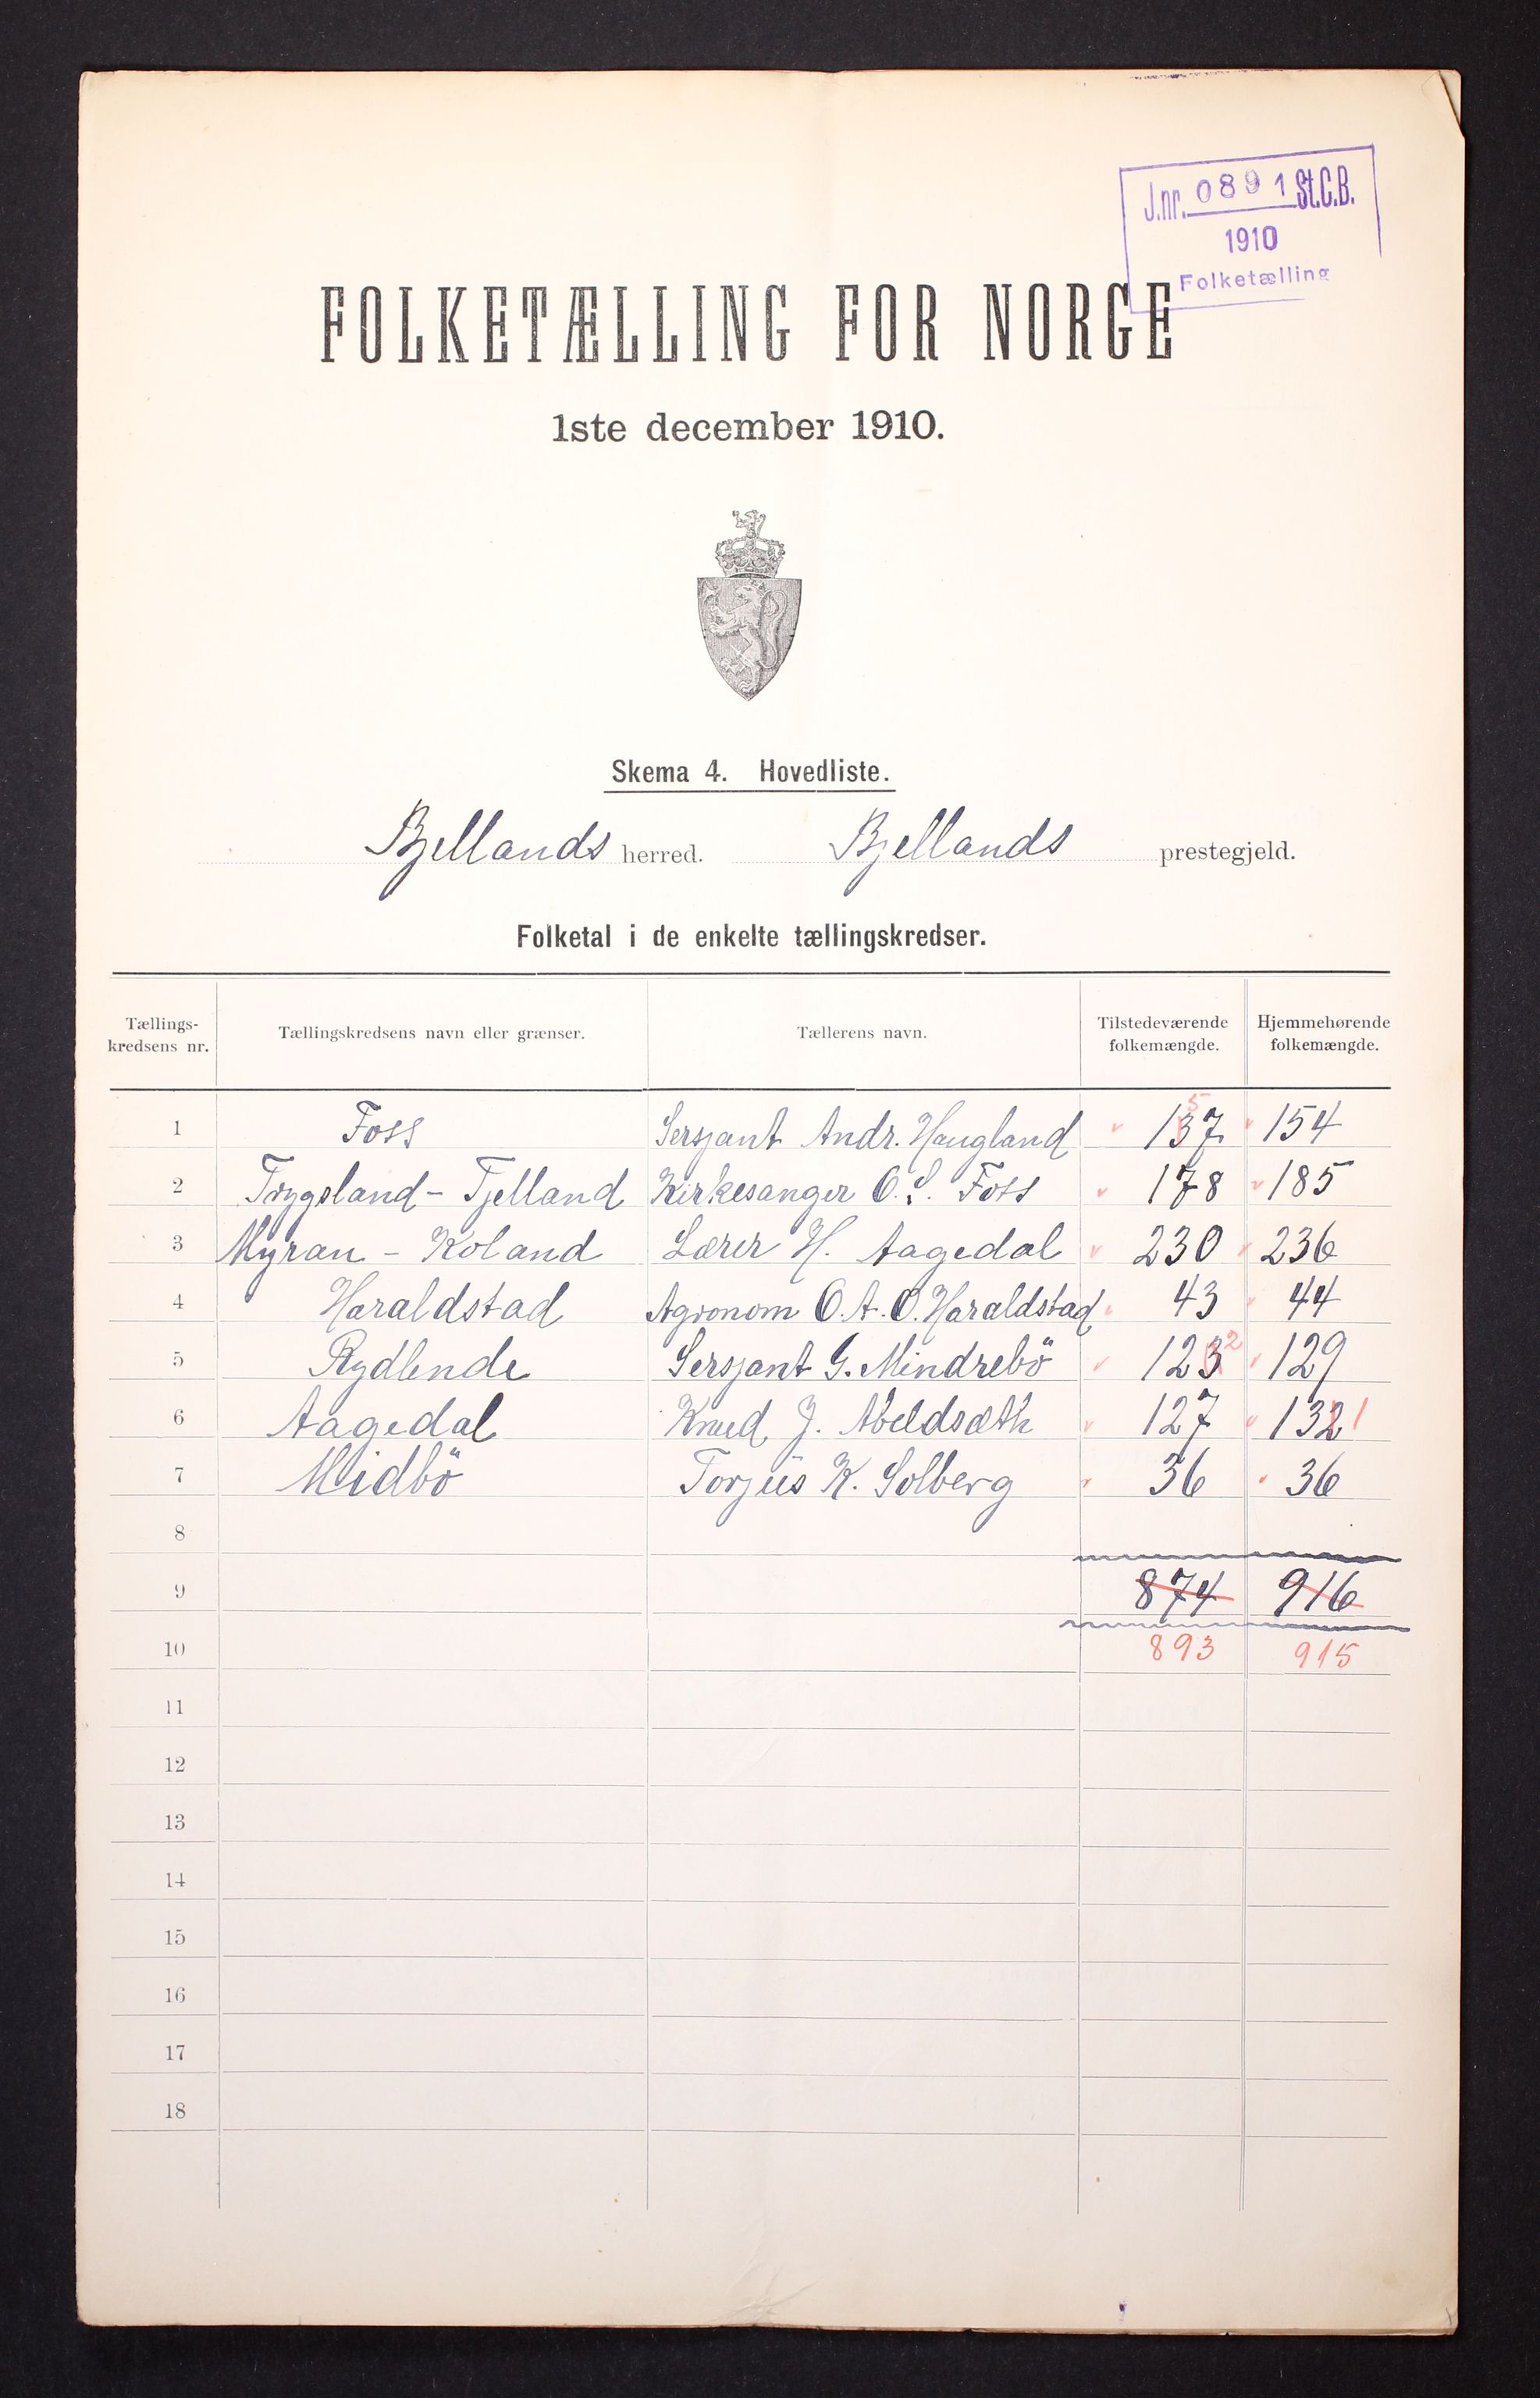 J.nr. 0891 St.C.B.
1910
Folketælling
FOLKETÆLLING FOR NORGE
1ste december 1910.
Skema 4. Hovedliste.
Bjellands herred. Bjellands prestegjeld.
Folketal i de enkelte tællingskredser.
Tællings-kredsens nr. Tællingskredsens navn eller grænser. Tællerens navn. Tilstedeværende folkemængde. Hjemmehørende folkemængde.
5
1 Foss Sersjant Andr. Haugland 137 154
2 Trygsland - Tjelland Kirkesanger O. S. Foss 178 185
3 Myran - Koland Lærer H. Aagedal 230 236
4 Haraldstad Agronom O. A. O. Haraldstad 43 44
5 Rydlende Sersjant G. Mindrebö 123 2 129
6 Aagedal Knud J. 127 132 1
7 Midbö Torjus K. Solberg 36 36
8
9 874 916
10 893 915
11
12
13
14
15
16
17
18